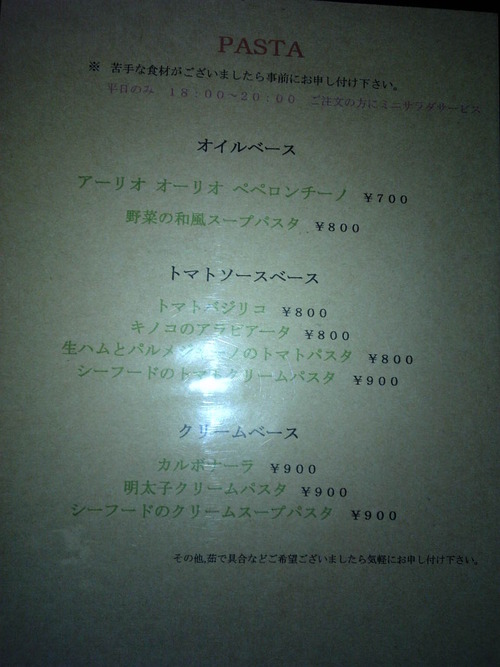 PASTA
※ 苦手な食材がございましたら事前にお申し付け下さい。
平日のみ 18:00~20:00 ご注文の方にミニサラダサービス
オイルベース
アーリオ オーリオ ペペロンチーノ ¥700
野菜の和風スープパスタ ¥800
トマトソースベース
トマトバジリコ ¥800
キノコのアラビアータ ¥800
生ハムとパルメジャーノのトマトパスタ ¥800
シーフードのトマトクリームパスタ ¥900
クリームベース
カルボナーラ ¥900
明太子クリームパスタ ¥900
シーフードのクリームスープパスタ ¥900
その他,茹で具合などご希望ございましたら気軽にお申し付け下さい。